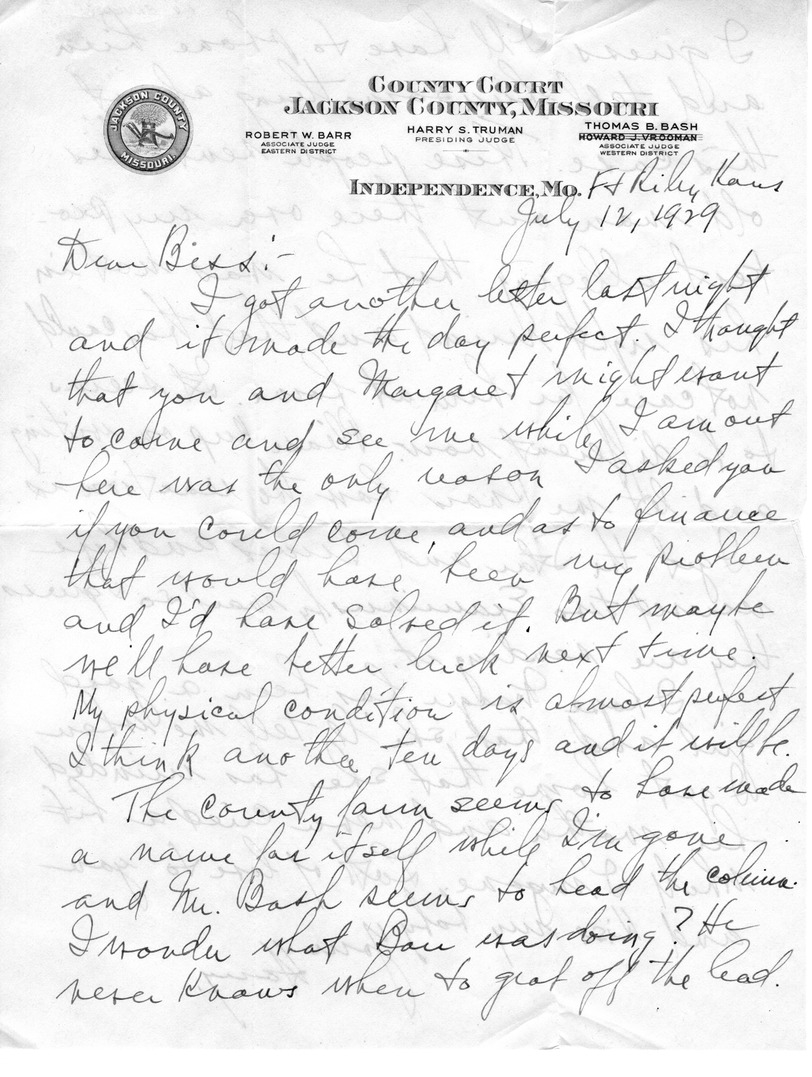 COUNTY COURT
JACKSON COUNTY, MISSOURI
JACKSON COUNTY
MISSOURI
ROBERT W. BARR
ASSOCIATE JUDGE
EASTERN DISTRICT
HARRY S. TRUMAN
PRESIDING JUDGE
THOMAS B. BASH
HOWARD J. VROOMAN
ASSOCIATE JUDGE
WESTERN DISTRICT
INDEPENDENCE, MO. Ft Riley, Kans
July 12, 1929
Dear Bess:-
I got another letter last night
and it made the day perfect. I thought
that you and Margaret might want
to come and see me while I am out
here was the only reason I asked you
if you could come, and as to finance
that would have been my problem
and I'd have solved it. But maybe
we'll have better luck next time.
My physical condition is almost perfect
I think another ten days and it will be.
The county farm seems to have made
a name for itself while I'm gone
and Mr. Bash seems to head the column.
I wonder what Barr was doing? He
never knows when to off the lead.